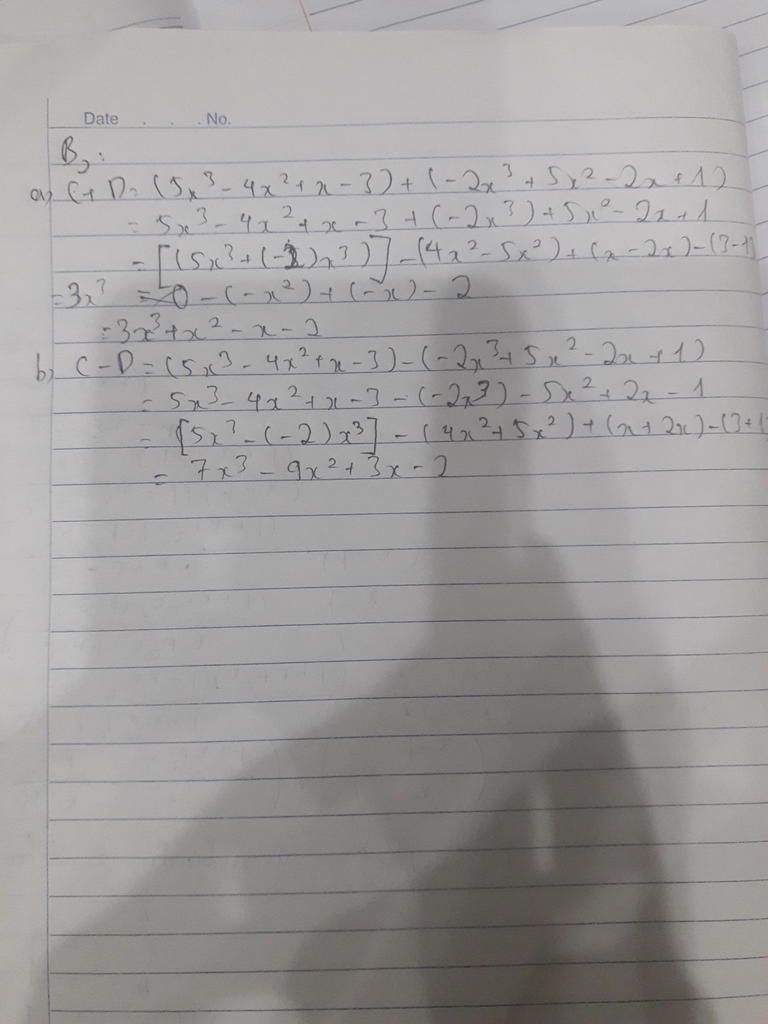 Date . . . No.
B3:
a) C+D = (5x³ - 4x² + x - 3) + (-2x³ + 5x² - 2x + 1)
= 5x³ - 4x² + x - 3 + (-2x³) + 5x² - 2x + 1
= [(5x³ + (-2)x³)] - (4x² - 5x²) + (x - 2x) - (3-1)
= 3x³ - (-x²) + (-x) - 2
= 3x³ + x² - x - 2
b) C-D = (5x³ - 4x² + x - 3) - (-2x³ + 5x² - 2x + 1)
= 5x³ - 4x² + x - 3 - (-2x³) - 5x² + 2x - 1
= [5x³ - (-2)x³] - (4x² + 5x²) + (x + 2x) - (3+1
= 7x³ - 9x² + 3x - 2